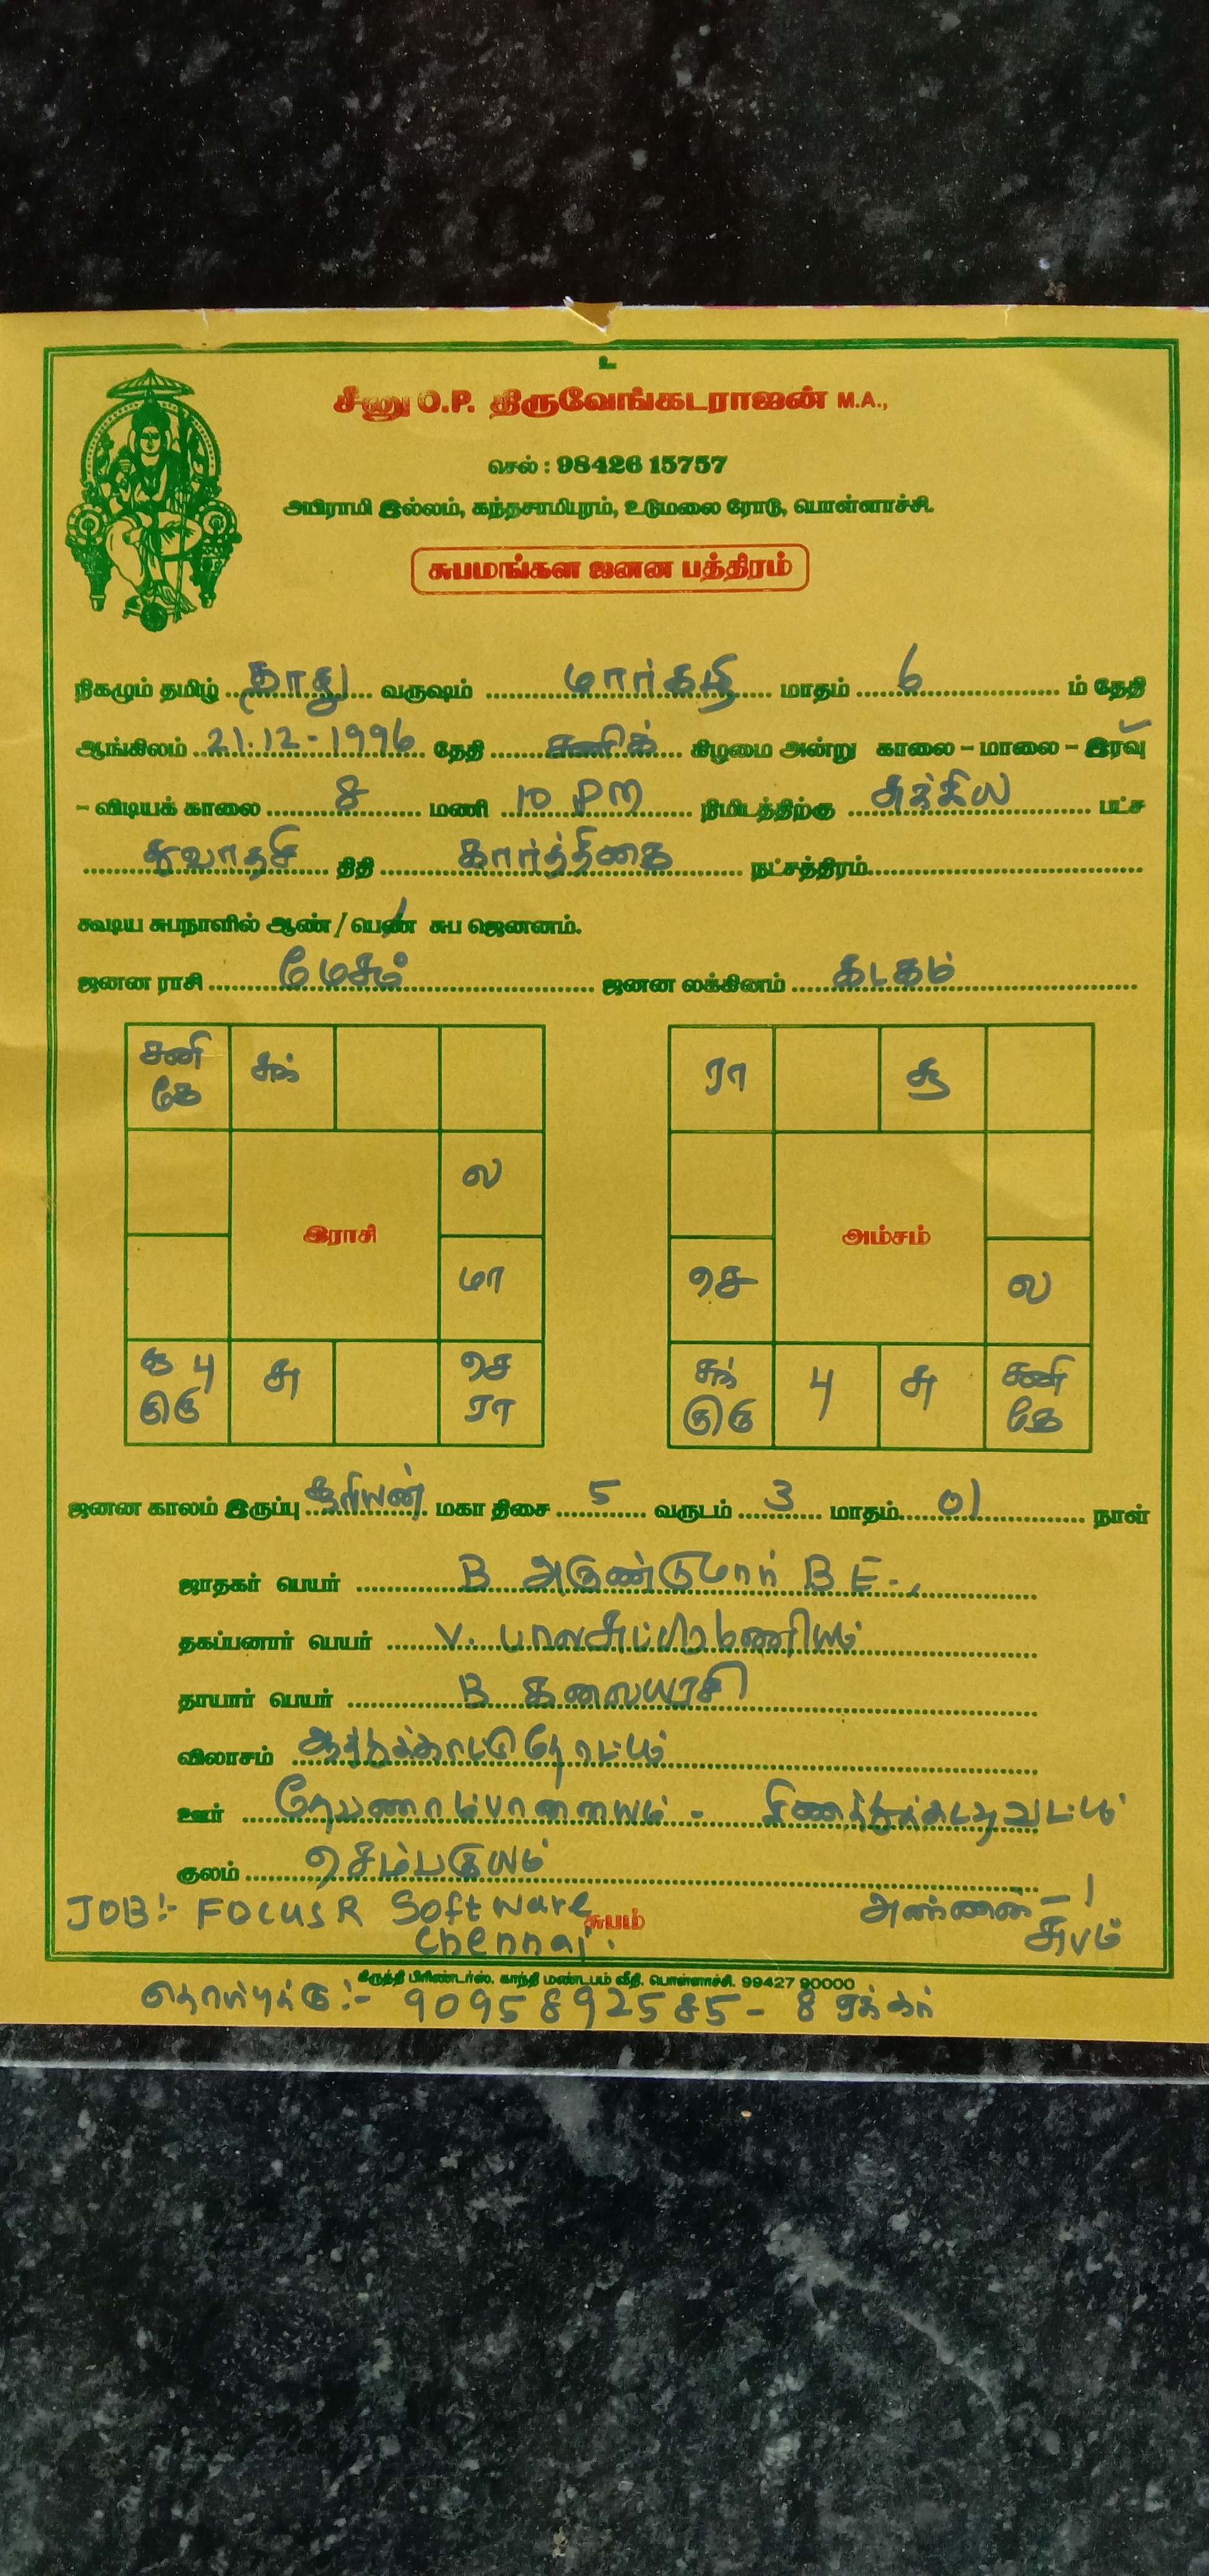 உ
சீனு O.P. திருவேங்கடராஜன் M.A.,
செல் : 98426 15757
அபிராமி இல்லம், கந்தசாமிபுரம், உடுமலை ரோடு, பொள்ளாச்சி.
சுபமங்கள ஜனன பத்திரம்
நிகழும் தமிழ் தாது வருஷம் மார்கழி மாதம் 6 ம் தேதி
ஆங்கிலம் 21.12-1996 தேதி சனிக் கிழமை அன்று காலை - மாலை - இரவு
- விடியக் காலை 8 மணி 10 PM நிமிடத்திற்கு சுக்கில பட்ச
துவாதசி திதி கார்த்திகை நட்சத்திரம்
கூடிய சுபநாளில் ஆண் / பெண் சுப ஜெனனம்.
ஜனன ராசி மேசம் ஜனன லக்கினம் கடகம்
சனி சுக் ரா சூ
கே
ல
இராசி அம்சம்
மா செ ல
பு சு செ சுக் பு சு சனி
குரு ரா குரு கே
ஜனன காலம் இருப்பு சூரியன் மகா திசை 5 வருடம் 3 மாதம் 01 நாள்
ஜாதகர் பெயர் B அருண்குமார் B E.,
தகப்பனார் பெயர் V. பாலசுப்பிரமணியம்
தாயார் பெயர் B கலையரசி
விலாசம்
ஊர் தேவணாம்பாளையம் - கிணத்துக்கடவு வட்டம்
குலம் செம்பகுயம்
JOB:- FOCUSR Software சுபம் அண்ணன் - 1
Chennai. சுபம்
கீருத்தி பிரிண்டர்ஸ், காந்தி மண்டபம் வீதி, பொள்ளாச்சி. 99427 90000
தொடர்புக்கு :- 9095892585 - 8 ஏக்கர்